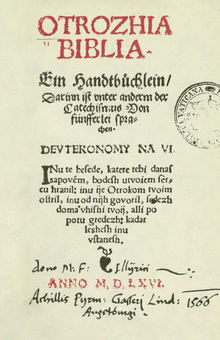 OTROZHIA
BIBLIA.
Ein Handtbüchlein/
Darinn ist vnter anderm der
Catechismus Von
fünfferlei spra⸗
chen.
DEVTERONOMY NA VI.
INu te besede, katere tebi danas
sapovém, bodesh utvoiem ser⸗
cu hranil; inu ije Otrokom tvoim
ostril, inu od nijh govoril, sedezh
doma vhishi tvoij, alli po
potu gredezh; kadar
leshesh inu
vstanesh.
dono M. F. Illÿrici
ANNO M. D. LXVI.
Achillis Pyrm: Gasserj Lind: 1566
Augsburgi
VATICANA